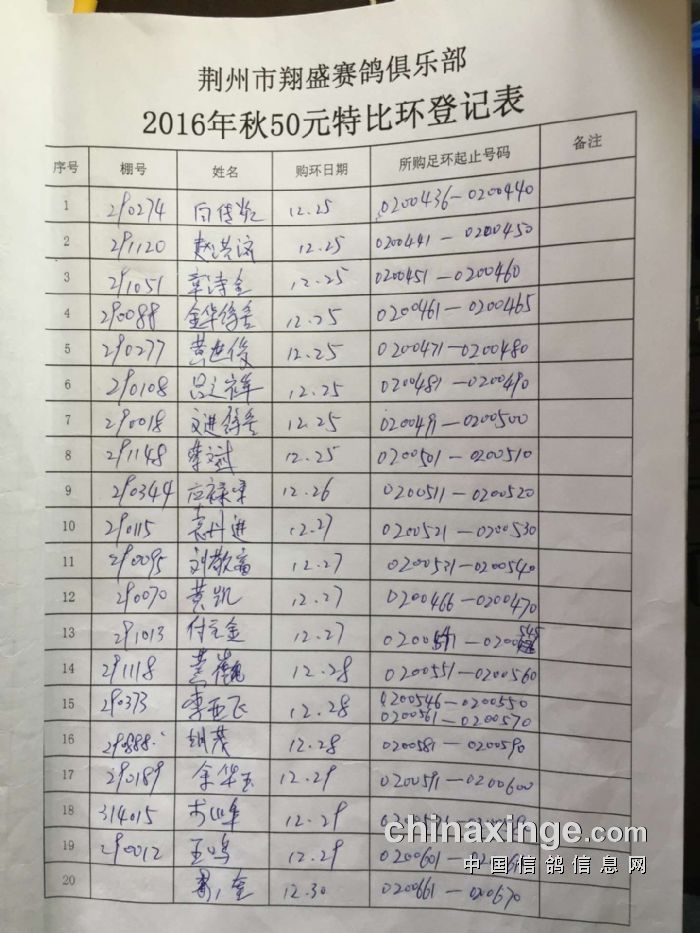 荆州市翔盛赛鸽俱乐部
2016年秋50元特比环登记表
序号 棚号 姓名 购环日期 所购足环起止号码 备注
1 290274 向传 12.25 0200436-0200440
2 291120 赵洪 12.25 0200441-0200450
3 291051 章诗金 12.25 0200451-0200460
4 290088 金华 12.25 0200461-0200465
5 290277 黄世俊 12.25 0200471-0200480
6 290108 吕之祥 12.25 0200481-0200490
7 290018 文进 12.25 0200491-0200500
8 291148 李文斌 12.25 0200501-0200510
9 290344 应禄 12.26 0200511-0200520
10 290115 袁丹进 12.27 0200521-0200530
11 290095 刘敬富 12.27 0200531-0200540
12 290070 黄凯 12.27 0200466-0200470
13 291013 付立金 12.27 545
14 291118 12.28 0200551-0200560
15 290373 李亚飞 12.28 0200546-0200550
0200561-0200570
16 290888 胡茂 12.28 0200581-0200590
17 290189 余华玉 12.29 0200591-0200600
18 314015 12.29
19 290012 王鸣 12.29 0200601-
20 12.30 0200661-020670
chinaxinge.com
中国信鸽信息网